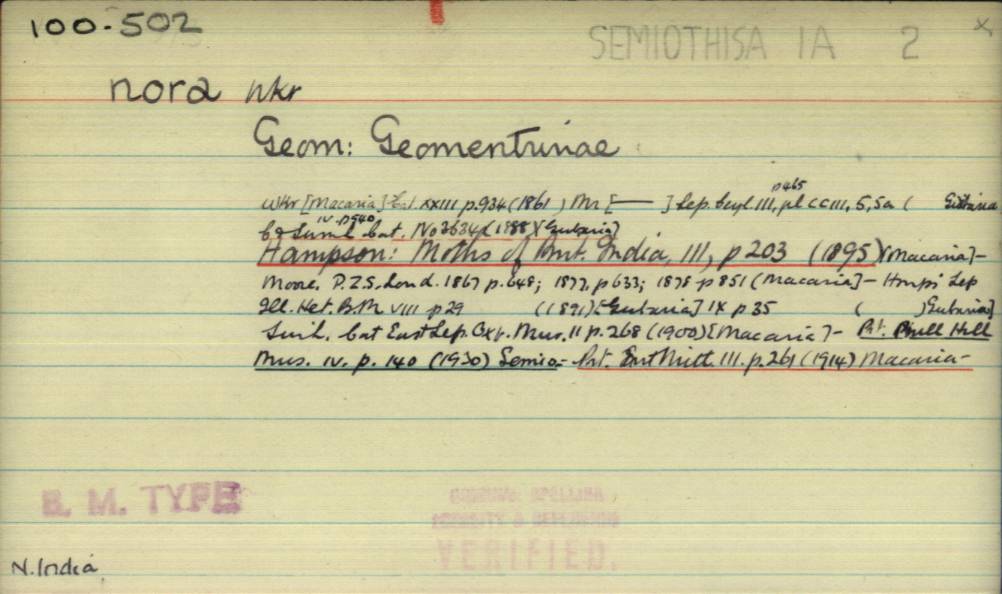 100-502
SEMIOTHISA IA 2 x
nora Wkr
Geom: Geomentrinae
p465
Wkr [Macaria] Cat. XXIII p.934 (1861) Mr [— ] Lep. Ceyl. III, pl CCIII, 5, 5a ( Eubaria
IV. p540
C & Swinh Cat. No 3634 (1888) [Eubaria]
Hampson: Moths of Brit. India, III, p 203 (1895) [Macaria] -
Moore. P.Z.S. Lond. 1867 p.648; 1877, p 633; 1878 p 851 (Macaria] - Hmps Lep
Ill. Het. B.M VIII p 29 (1891) [Eubaria] IX p 35 ( ) Eubaria]
Swih. Cat East Lep. Oxf. Mus. II p. 268 (1900) [Macaria] - Prt. Bull Hill
Mus. IV. p. 140 (1930) Semio - Prt. Ent Mitt. III. p. 261 (1914) Macaria -
B. M. TYPE
VERIFIED.
N. India